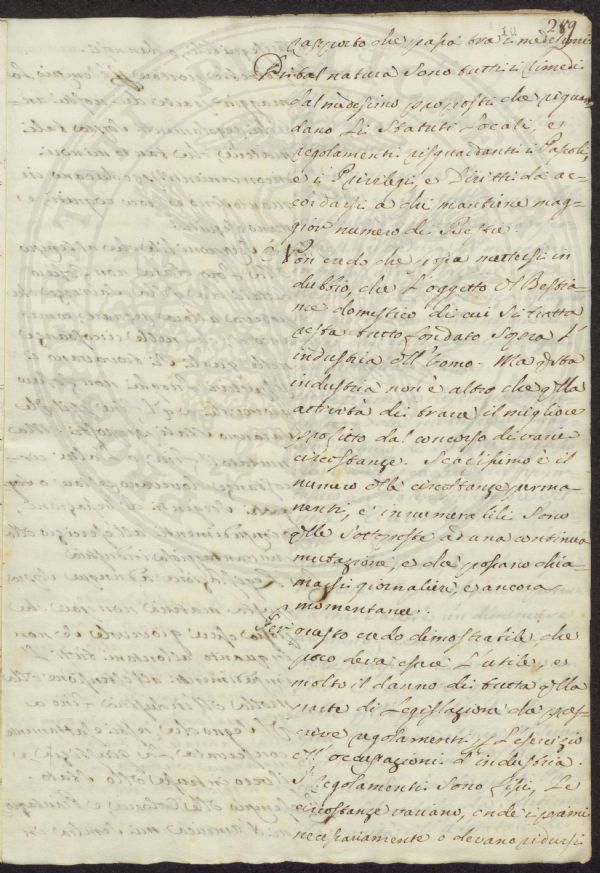 289
rapporto che passa tra i medesimi.
Di tal natura sono tutti i Rimedi
dal medesimo proposti che riguar
dano li Statuti Locali, e
regolamenti risguardanti i Pascoli,
e i Privilegi, e Diritti da ac=
cordarsi a chi mantiene mag=
gior numero di Bestie.
Non credo che possa mettersi in
dubbio, che l'oggetto del Bestia=
me domestico di cui si tratta
resta tutto fondato sopra l'
industria dell'Uomo. Ma questa
industria non è altro che quella
attività di trarre il migliore
profitto dal concorso di varie
circostanze. Scarsissimo è il
numero delle circostanze perma=
nenti, e innumerabili sono
quelle sottoposte ad una continua
mutazione, e che possano chia=
marsi giornaliere, e ancora
momentanee.
Per questo credo dimostrabile, che
poco deva essere l'utile, e
molto il danno di tutta quella
parte di Legislazione da pres=
crive regolamenti per l'esercizio
dell'occupazioni d'industria.
I Regolamenti sono fissi, le
circostanze variano, onde i primi
necessariamente o devano ridursi